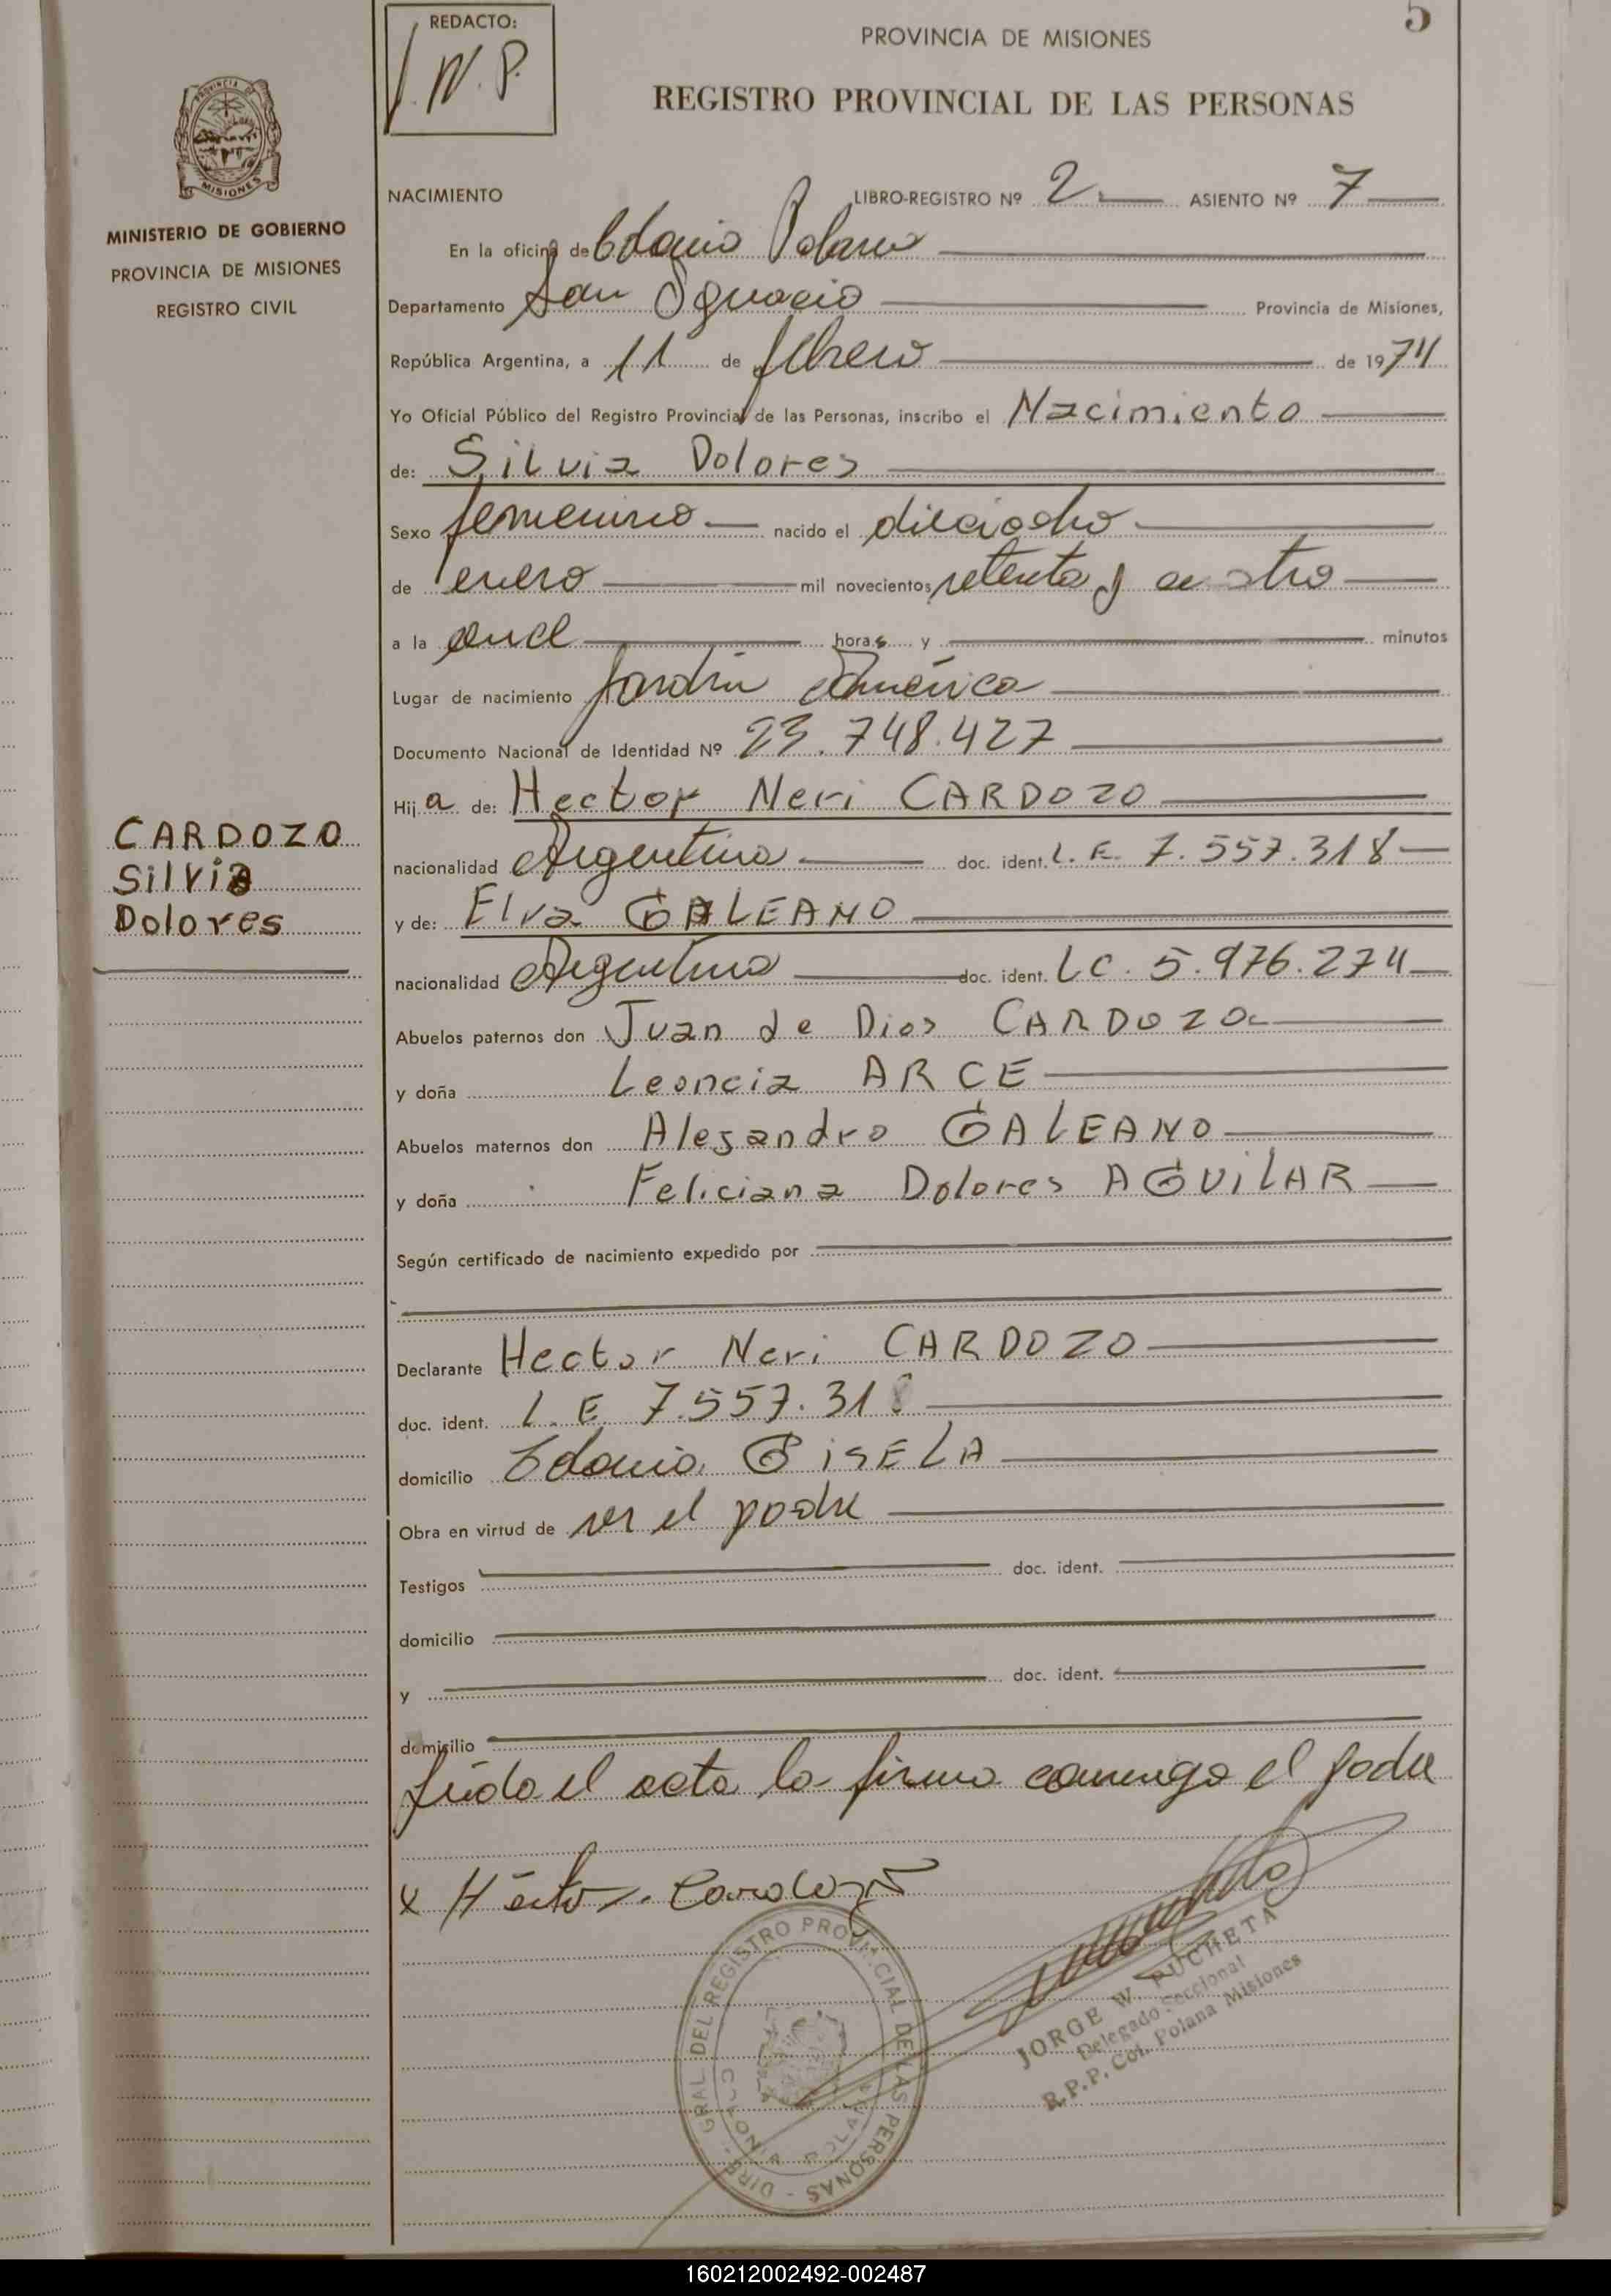 REDACTO:
J.W.P.
PROVINCIA DE MISIONES
5
REGISTRO PROVINCIAL DE LAS PERSONAS
MISIONES
MINISTERIO DE GOBIERNO
PROVINCIA DE MISIONES
REGISTRO CIVIL
NACIMIENTO LIBRO-REGISTRO Nº 2 ASIENTO Nº 7
En la oficina de Colonia Polana
Departamento San Ignacio Provincia de Misiones,
República Argentina, a 11 de febrero de 1974
Yo Oficial Público del Registro Provincial de las Personas, inscribo el Nacimiento
de: Silvia Dolores
Sexo femenino nacido el dieciocho
de enero mil novecientos setenta y cuatro
a la once horas y minutos
Lugar de nacimiento Jardín América
Documento Nacional de Identidad Nº 23.748.427
Hija de: Hector Neri CARDOZO
CARDOZO
Silvia
Dolores
nacionalidad Argentina doc. ident. L.E. 7.557.318
y de: Elva GALEANO
nacionalidad Argentina doc. ident. LC. 5.976.274
Abuelos paternos don Juan de Dios CARDOZO
y doña Leoncia ARCE
Abuelos maternos don Alejandro GALEANO
y doña Feliciana Dolores AGUILAR
Según certificado de nacimiento expedido por
Declarante Hector Neri CARDOZO
doc. ident. L.E. 7.557.318
domicilio Colonia GISELA
Obra en virtud de ser el padre
Testigos doc. ident.
domicilio
y doc. ident.
domicilio
leída el acta la firma conmigo el padre
x Héctor. Cardozo
DIREC. GRAL. DEL REGISTRO PROVINCIAL DE LAS PERSONAS
JORGE W. PUCHETA
Delegado Seccional
R.P.P. Col. Polana Misiones
160212002492-002487